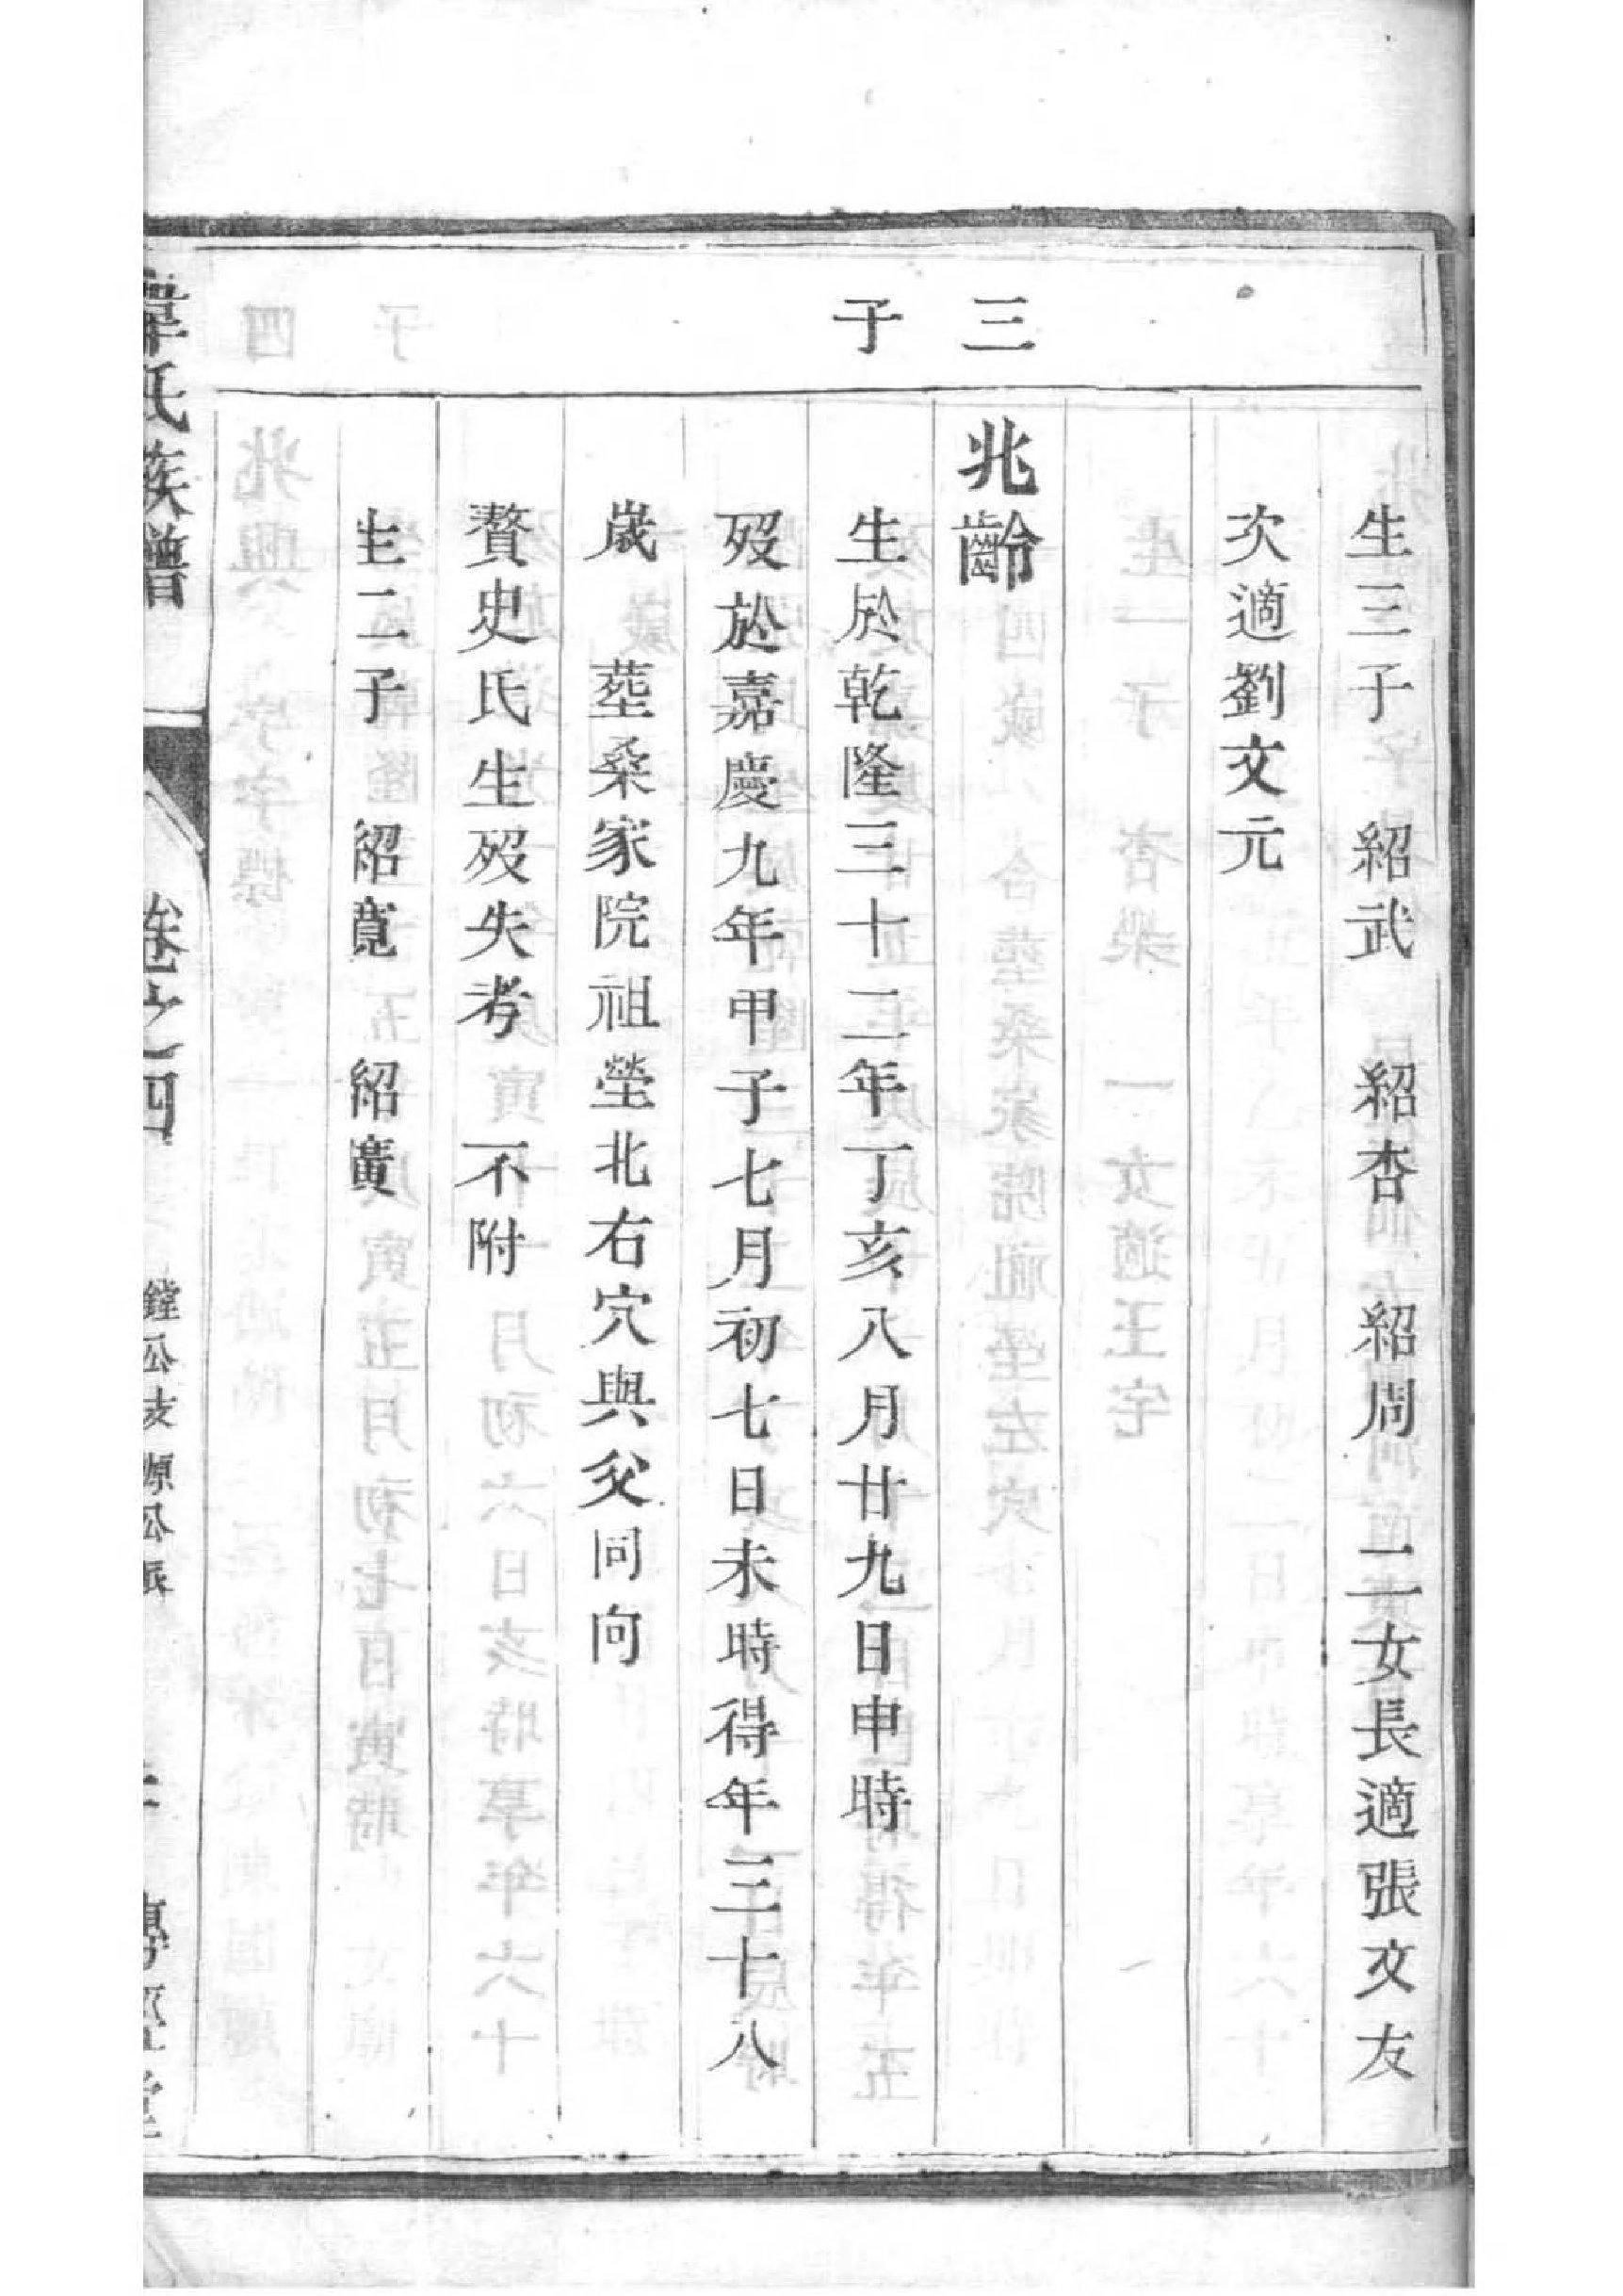 三子
生三子　紹武　紹杏　紹周　二女長適張文友
次適劉文元
兆齡
生於乾隆三十二年丁亥八月廿九日申時
歿於嘉慶九年甲子七月初七日未時得年三十八
歲　塟桑家院祖塋北右穴與父同向
贅史氏生歿失考　不附
生二子　紹寬　紹廣
韋氏族譜
卷之四
鏜公支　源公派
傳經堂